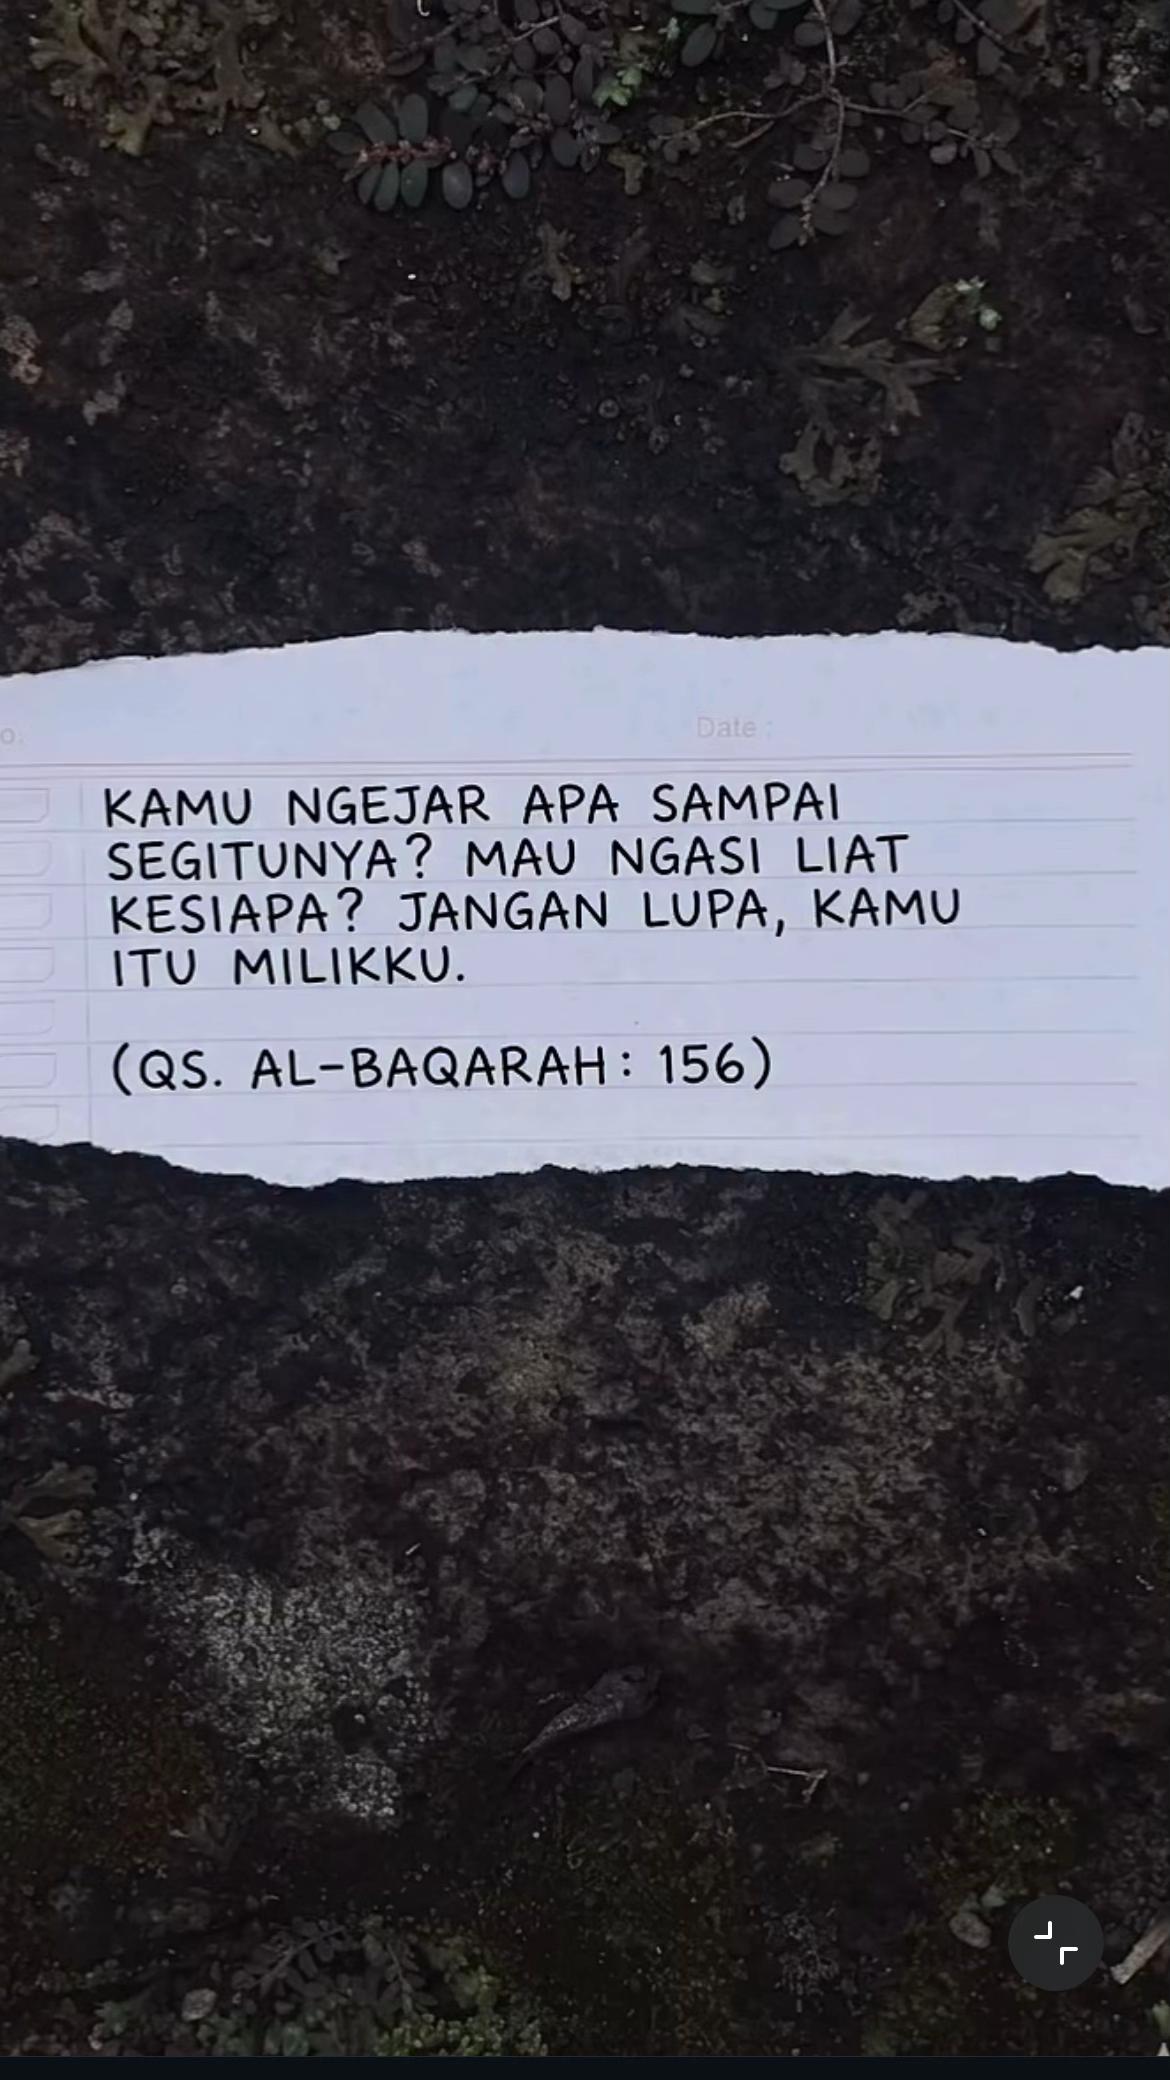 o.
Date :
KAMU NGEJAR APA SAMPAI
SEGITUNYA? MAU NGASI LIAT
KESIAPA? JANGAN LUPA, KAMU
ITU MILIKKU.
(QS. AL-BAQARAH: 156)